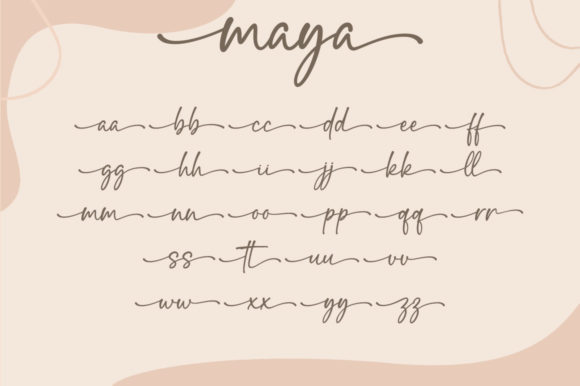 maya
aa bb cc dd ee ff
gg hh ii jj kk ll
mm nn oo pp qq rr
ss tt uu vv
ww xx yy zz